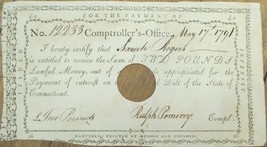 FOR THE PAYMENT OF
No. 12233 Comptroller's-Office, May 17th 1791
I hereby certify that Sarah Rogers
is entitled to receive the Sum of TWO POUNDS
Lawful Money, out of appropriated for the
Payment of interest on Debt of the State of
Connecticut.
Two Pounds Ralph Pomeroy Compt.
HARTFORD: PRINTED BY HUDSON AND GOODWIN.